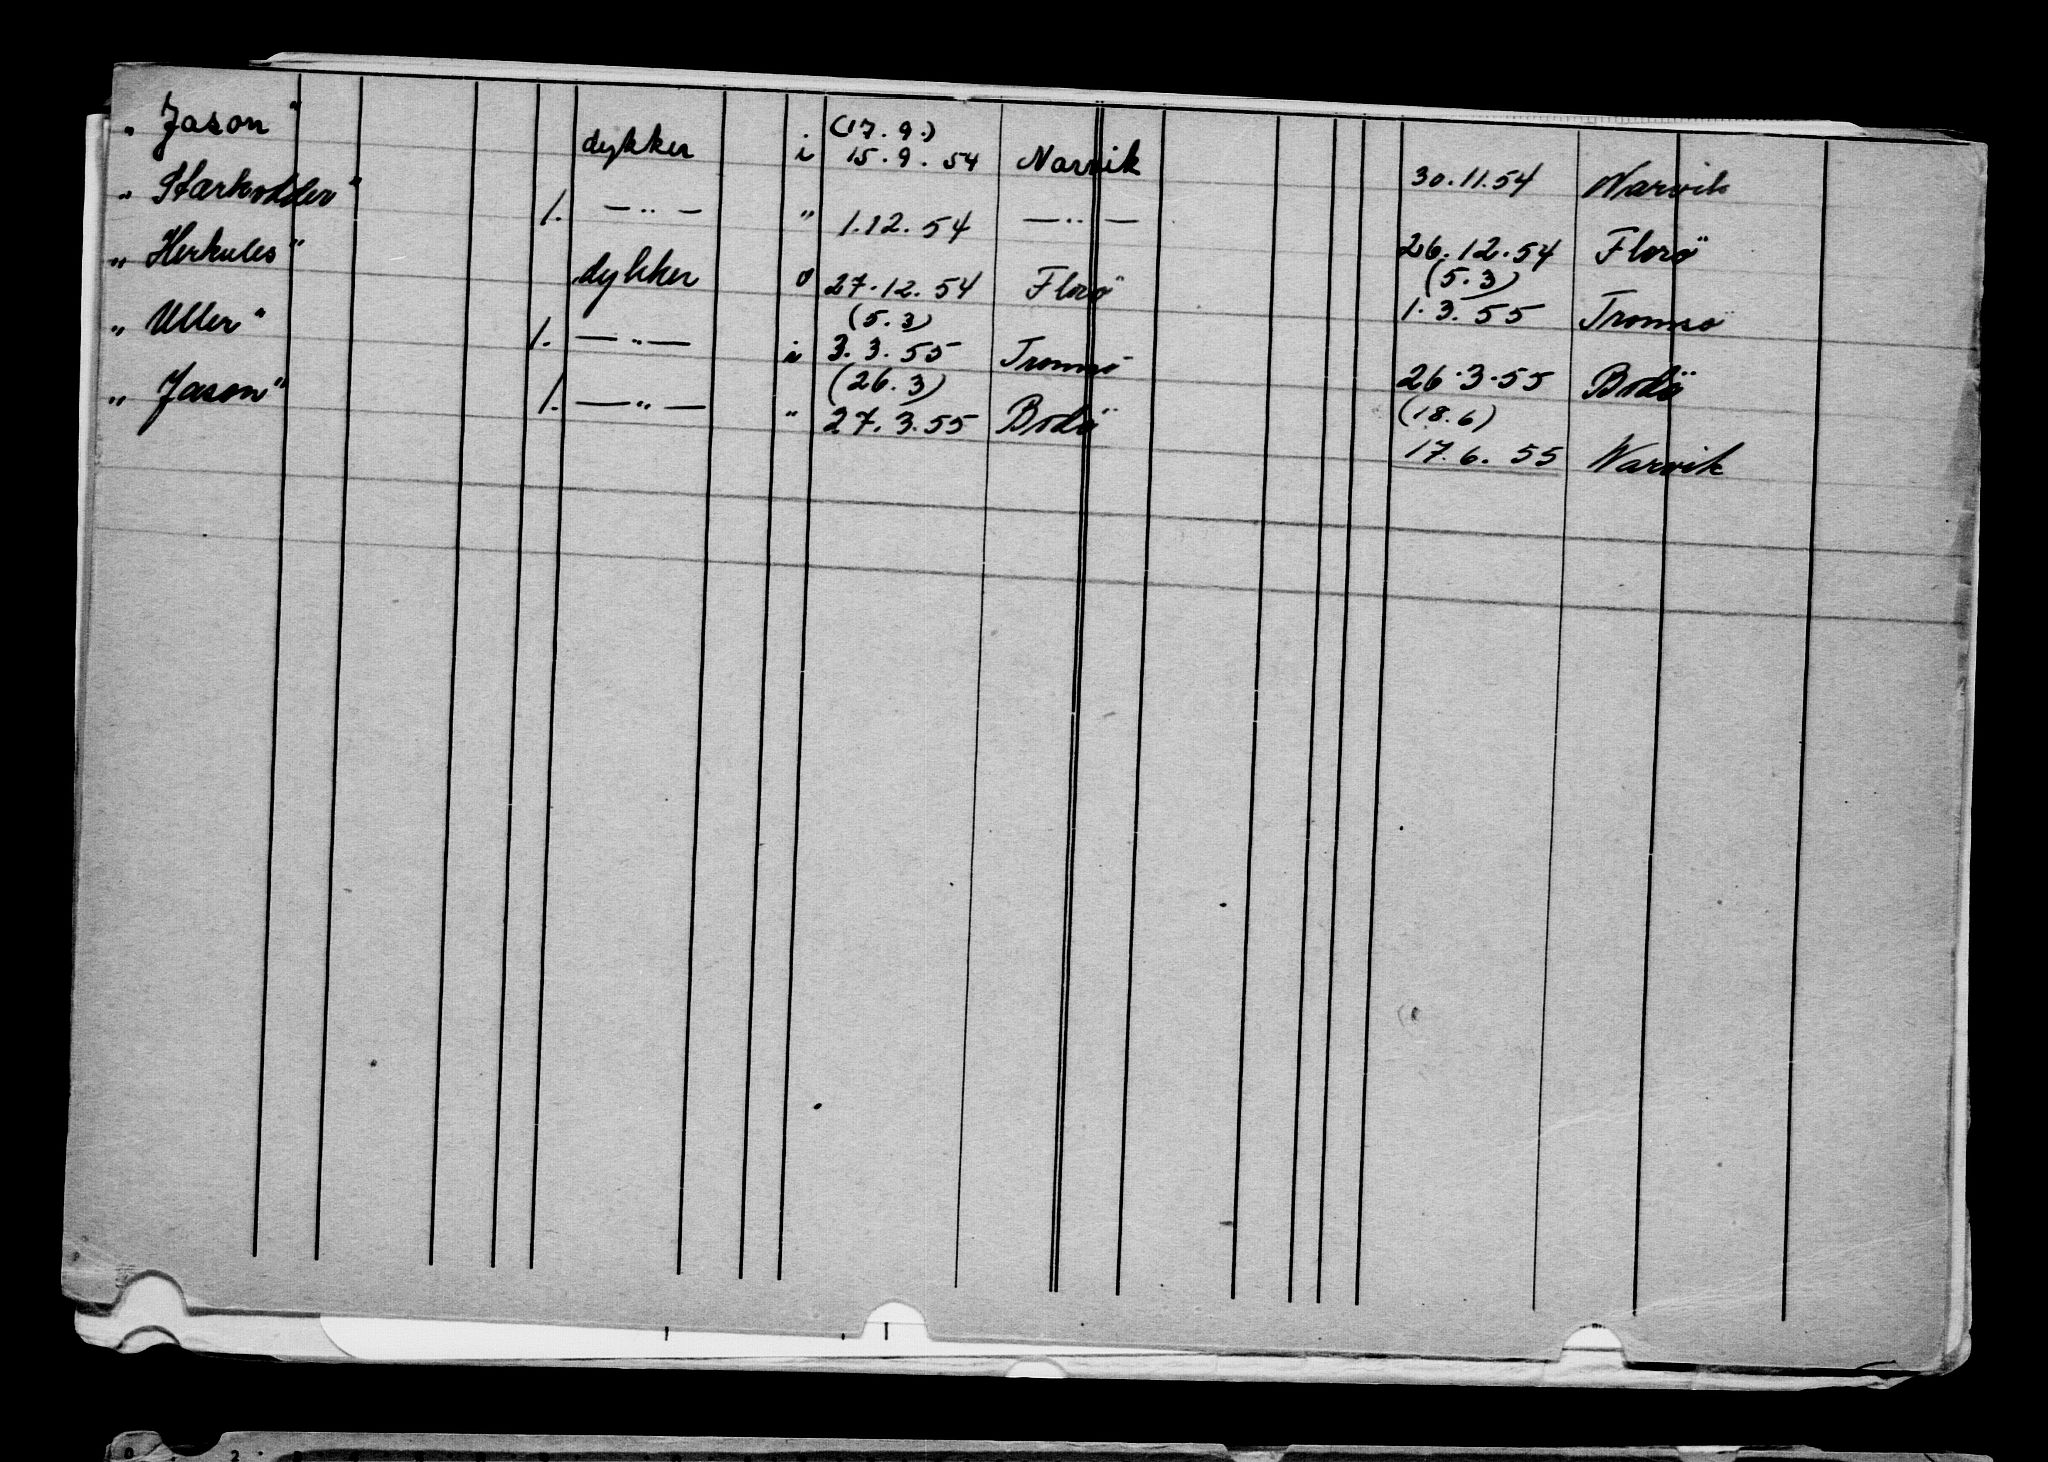 „ Jason" dykker i (17.9.) 15.9.54 Narvik 30.11.54 Narvik
„ Stærkodder" 1. —„— " 1.12.54 —„— 26.12.54 Florö
„ Herkules" dykker o 27.12.54 Florö (5.3) 1.3.55 Tromsö
„ Uller" 1. —„— i (5.3) 3.3.55 Tromsö 26.3.55 Bodö
„ Jason" 1. —„— " (26.3) 27.3.55 Bodö (18.6) 17.6.55 Narvik